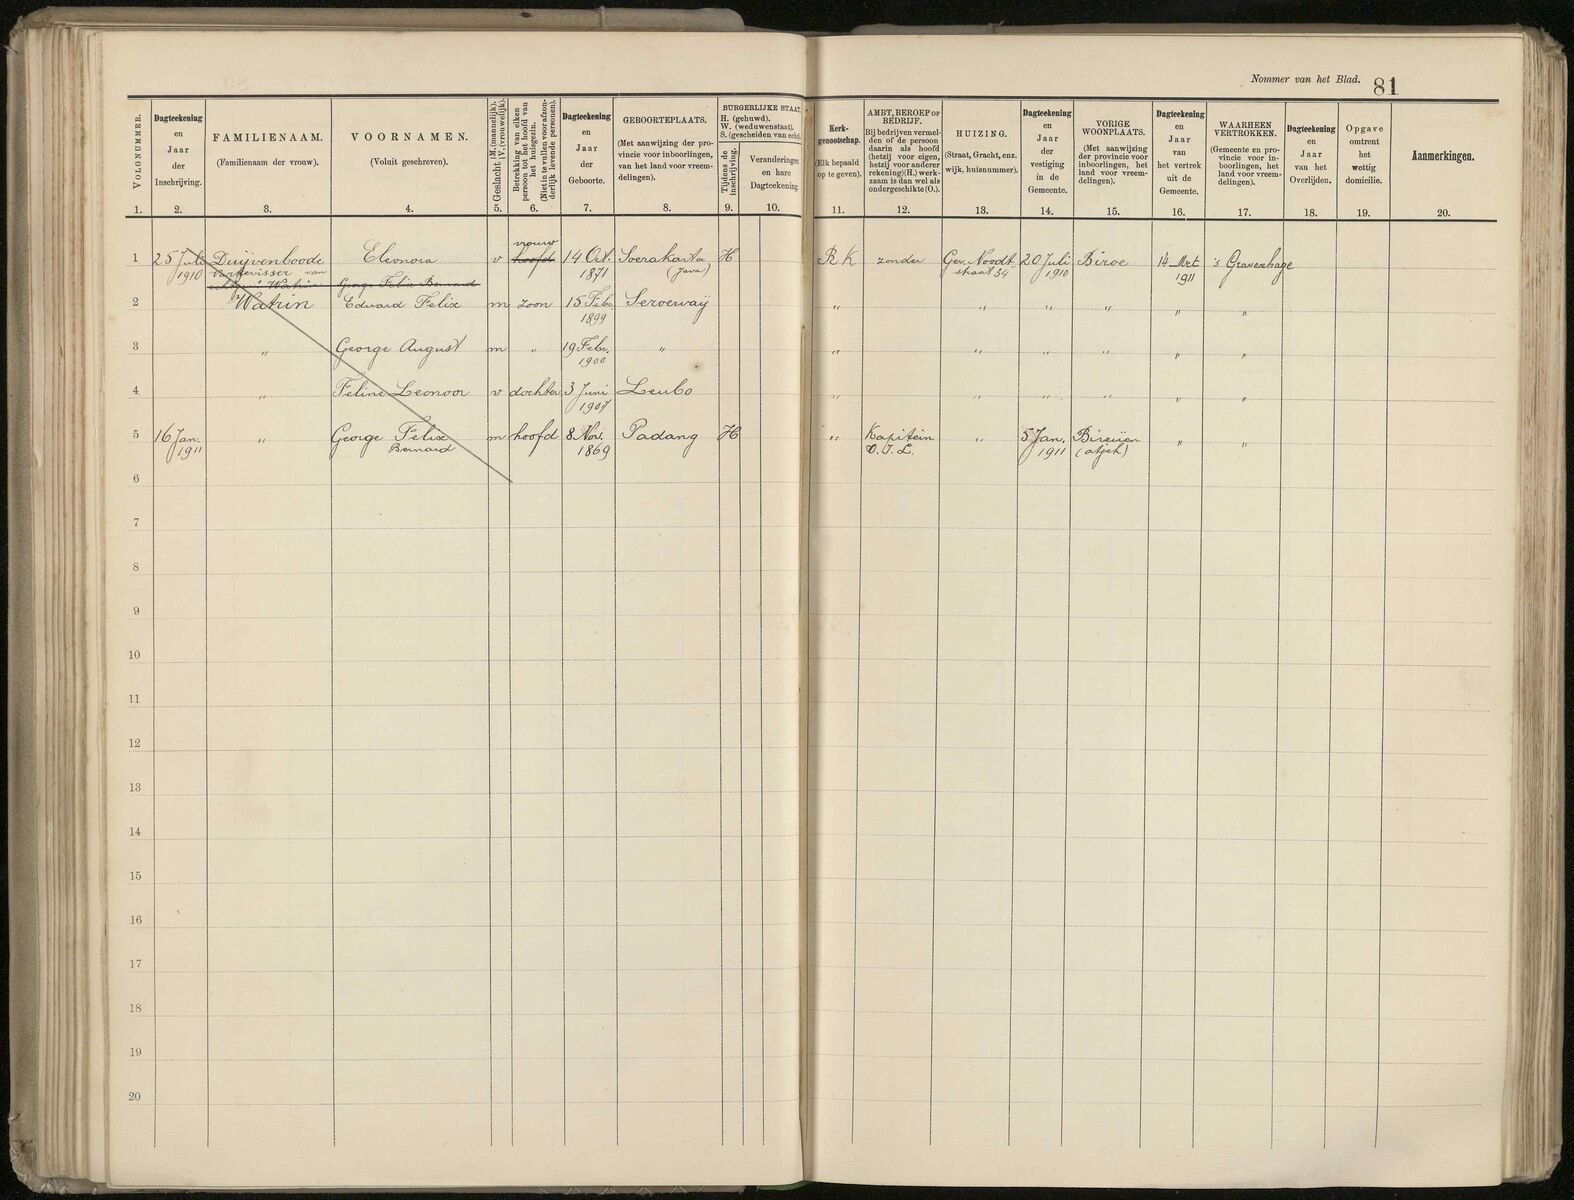 Nommer van het Blad. 81
VOLGNUMMER.
1.
Dagteekening
en
Jaar
der
Inschrijving.
2.
FAMILIENAAM.
(Familienaam der vrouw).
3.
VOORNAMEN.
(Voluit geschreven).
4.
Geslacht M. (mannelijk). V. (vrouwelijk).
5.
Betrekking van elken
persoon tot het hoofd van
het huisgezin.
(Niet in te vullen voor afzon-
derlijk levende personen).
6.
Dagteekening
en
Jaar
der
Geboorte.
7.
GEBOORTEPLAATS.
(Met aanwijzing der pro-
vincie voor inboorlingen,
van het land voor vreem-
delingen).
8.
BURGERLIJKE STAAT.
H. (gehuwd).
W. (weduwenstaat).
S. (gescheiden van echt).
Tijdens de
inschrijving.
9.
Veranderingen
en hare
Dagteekening.
10.
Kerk-
genootschap.
(Elk bepaald
op te geven).
11.
AMBT, BEROEP OF
BEDRIJF.
Bij bedrijven vermel-
den of de persoon
daarin als hoofd
(hetzij voor eigen,
hetzij voor anderer
rekening) (H.) werk-
zaam is dan wel als
ondergeschikte (O.).
12.
HUIZING.
(Straat, Gracht, enz.
wijk, huisnummer).
13.
Dagteekening
en
Jaar
der
vestiging
in de
Gemeente.
14.
VORIGE
WOONPLAATS.
(Met aanwijzing
der provincie voor
inboorlingen, het
land voor vreem-
delingen).
15.
Dagteekening
en
Jaar
van
het vertrek
uit de
Gemeente.
16.
WAARHEEN
VERTROKKEN.
(Gemeente en pro-
vincie voor in-
boorlingen, het
land voor vreem-
delingen).
17.
Dagteekening
en
Jaar
van het
Overlijden.
18.
Opgave
omtrent
het
wettig
domicilie.
19.
Aanmerkingen.
20.
vrouw
1 25 Juli Duijvenboode Eleonora v hoofd 14 Oct. Soerakarta H R K zonder Ger. Noodt 20 Juli Biroe 14 Mrt 's Gravenhage
1910 van 1871 (Java) straat 34 1910 1911
Watrin George Felix Bernard
2 Watrin Eduard Felix m zoon 15 Febr. Seroewaij " " " " " "
1899
3 " George August m " 19 Febr. " " " " " " "
1900
4 " Feline Leonoor v dochter 3 Juni Leubo " " " " " "
1907
5 16 Jan. " George Felix m hoofd 8 Nov. Padang H " Kapitein " 5 Jan. Bireüen " "
1911 Bernard 1869 O. I. L. 1911 (atjeh)
6
7
8
9
10
11
12
13
14
15
16
17
18
19
20